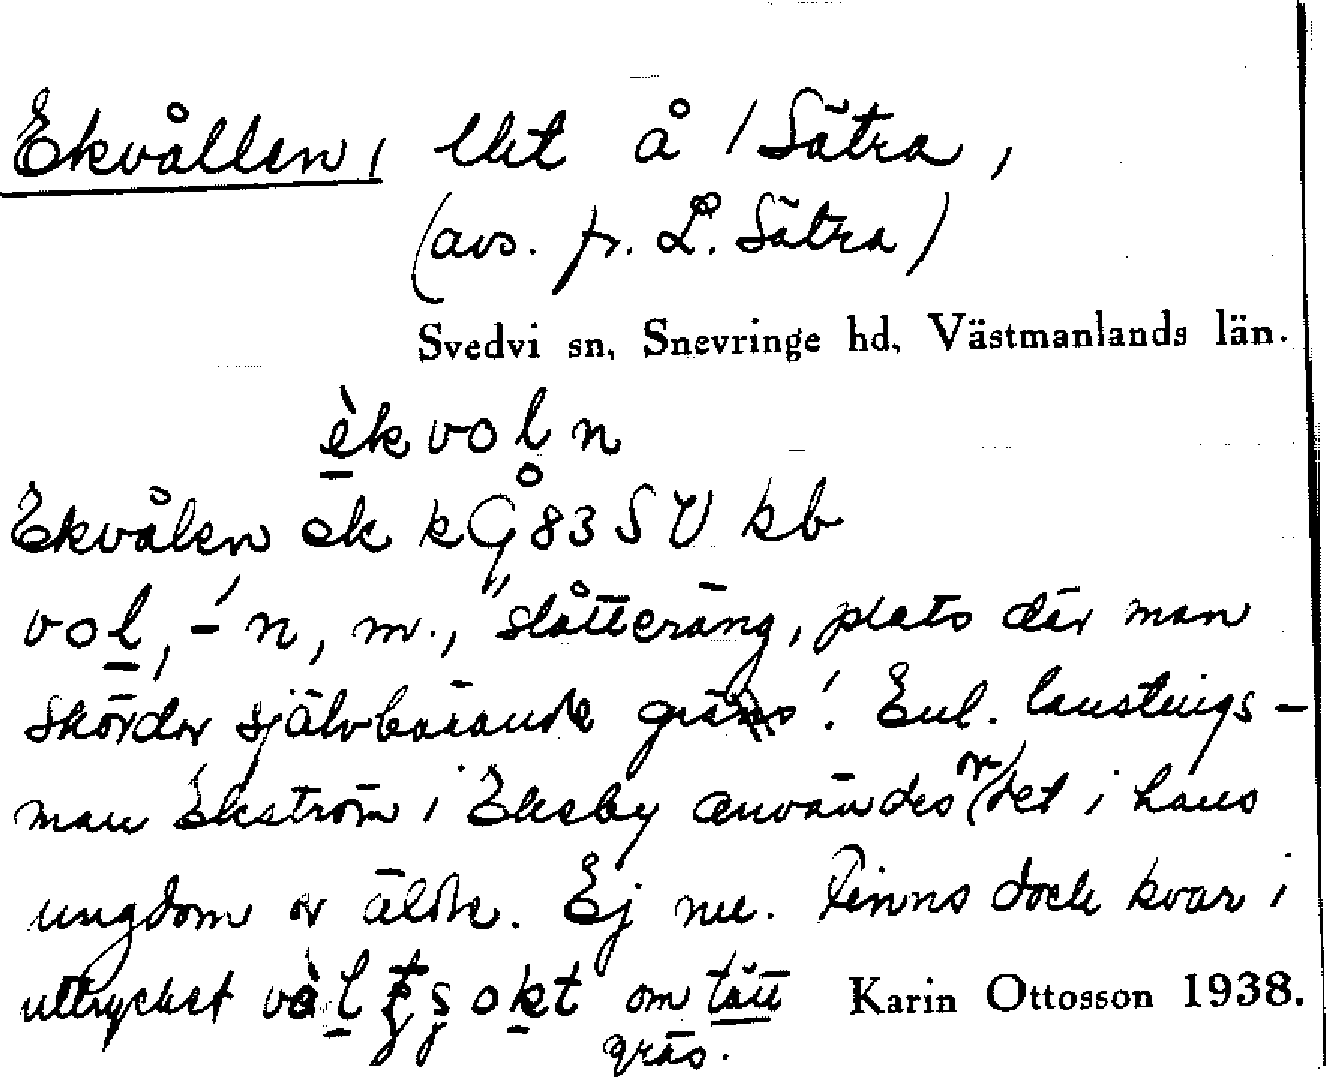 Ekvållen, litet å / Sätra,
(avs. fr. L. Sätra)
Svedvi sn, Snevringe hd, Västmanlands län.
èkvoln
Ekvålen ek kGÅ 83 SV kb
vol, -´n, m., "slåtteräng, plats där man
skördar självbärande gräs". Enl. landstings-
man Ekström i Ekeby användes or det i hans
ungdom av äldre. Ej nu. Finns dock kvar i
uttrycket om tätt Karin Ottosson 1938.
gräs.